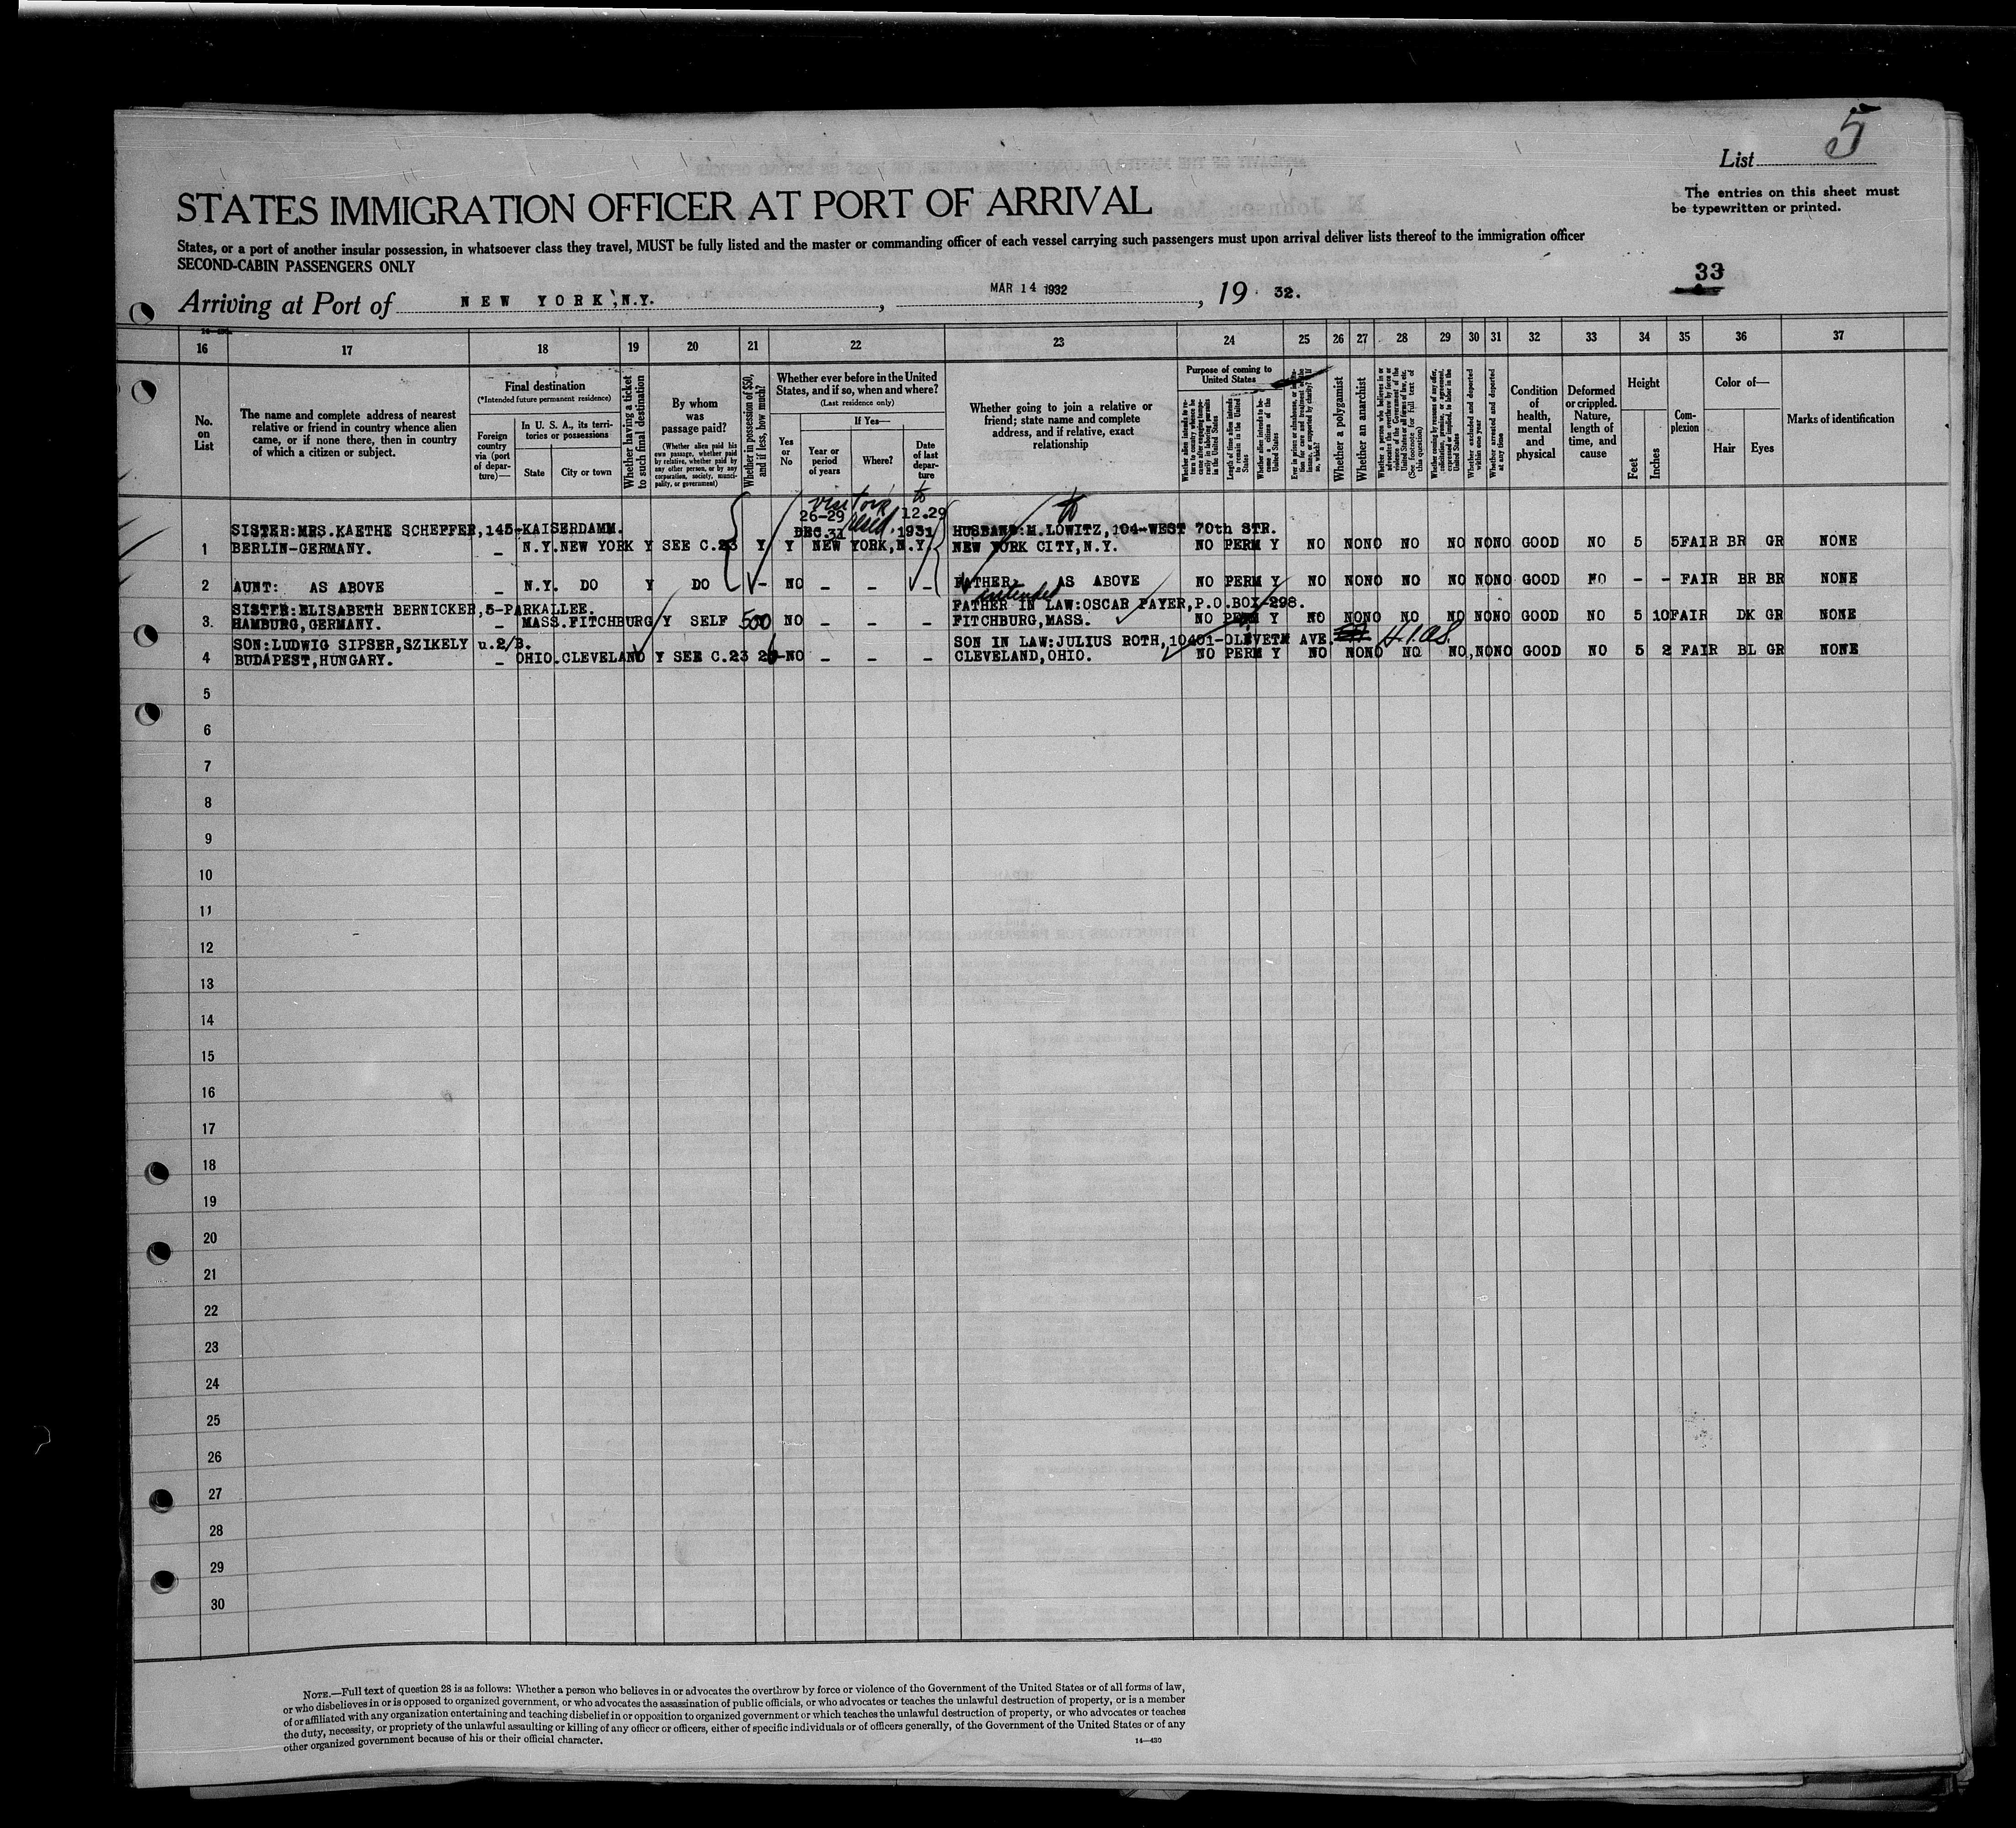 5
List
The entries on this sheet must
be typewritten or printed.
STATES IMMIGRATION OFFICER AT PORT OF ARRIVAL
States, or a port of another insular possession, in whatsoever class they travel, MUST be fully listed and the master or commanding officer of each vessel carrying such passengers must upon arrival deliver lists thereof to the immigration officer
SECOND-CABIN PASSENGERS ONLY
33
Arriving at Port of NEW YORK, N.Y. , MAR 14 1932 , 19 32.
16 17 18 19 20 21 22 23 24 25 26 27 28 29 30 31 32 33 34 35 36 37
No. on List
The name and complete address of nearest relative or friend in country whence alien came, or if none there, then in country of which a citizen or subject.
Final destination
(*Intended future permanent residence)
Foreign country via (port of departure)—
In U. S. A., its territories or possessions
State
City or town
Whether having a ticket to such final destination
By whom was passage paid?
(Whether alien paid his own passage, whether paid by relative, whether paid by any other person, or by any corporation, society, municipality, or government)
Whether in possession of $50, and if less, how much?
Whether ever before in the United States, and if so, when and where?
(Last residence only)
Yes or No
If Yes—
Year or period of years
Where?
Date of last departure
Whether going to join a relative or friend; state name and complete address, and if relative, exact relationship
Purpose of coming to United States
Whether alien intends to return to country whence he came after engaging temporarily in laboring pursuits in the United States
Length of time alien intends to remain in the United States
Whether alien intends to become a citizen of the United States
Whether a polygamist
Whether an anarchist
Whether a person who believes in or advocates the overthrow by force or violence of the Government of the United States or all forms of law, etc. (See footnote for full text of this question)
Whether excluded and deported within one year
Whether arrested and deported at any time
Condition of health, mental and physical
Deformed or crippled. Nature, length of time, and cause
Height
Feet
Inches
Complexion
Color of—
Hair
Eyes
Marks of identification
visitor to
26-29 12.29
SISTER:MRS.KAETHE SCHEFFER,145-KAISERDAMM. DEC.31 1931 HUSBAND:M.LOWITZ,104-WEST 70th STR.
1 BERLIN-GERMANY. _ N.Y.NEW YORK Y SEE C.23 Y Y NEW YORK,N.Y NEW YORK CITY,N.Y. NO PERM Y NO NONO NO NO NONO GOOD NO 5 5FAIR BR GR NONE
2 AUNT: AS ABOVE _ N.Y. DO Y DO - NO - - - FATHER: AS ABOVE NO PERM Y NO NONO NO NO NONO GOOD NO - - FAIR BR BR NONE
intended
SISTER:ELISABETH BERNICKER,5-PARKALLEE. FATHER IN LAW:OSCAR PAYER,P.O.BOX-298.
3. HAMBURG,GERMANY. - MASS.FITCHBURG Y SELF 500 NO - - - FITCHBURG,MASS. NO PERM Y NO NONO NO NO NONO GOOD NO 5 10FAIR DK GR NONE
SON:LUDWIG SIPSER,SZIKELY u.2/B. SON IN LAW:JULIUS ROTH,10401-OLIVETM AVE. Hias
4 BUDAPEST,HUNGARY. - OHIO.CLEVELAND Y SEE C.23 NO - - - CLEVELAND,OHIO. NO PERM Y NO NONO NO NO,NONO GOOD NO 5 2 FAIR BL GR NONE
5
6
7
8
9
10
11
12
13
14
15
16
17
18
19
20
21
22
23
24
25
26
27
28
29
30
NOTE.—Full text of question 28 is as follows: Whether a person who believes in or advocates the overthrow by force or violence of the Government of the United States or of all forms of law,
or who disbelieves in or is opposed to organized government, or who advocates the assassination of public officials, or who advocates or teaches the unlawful destruction of property, or is a member
of or affiliated with any organization entertaining and teaching disbelief in or opposition to organized government or which teaches the unlawful destruction of property, or who advocates or teaches
the duty, necessity, or propriety of the unlawful assaulting or killing of any officer or officers, either of specific individuals or of officers generally, of the Government of the United States or of any
other organized government because of his or their official character.
14—430